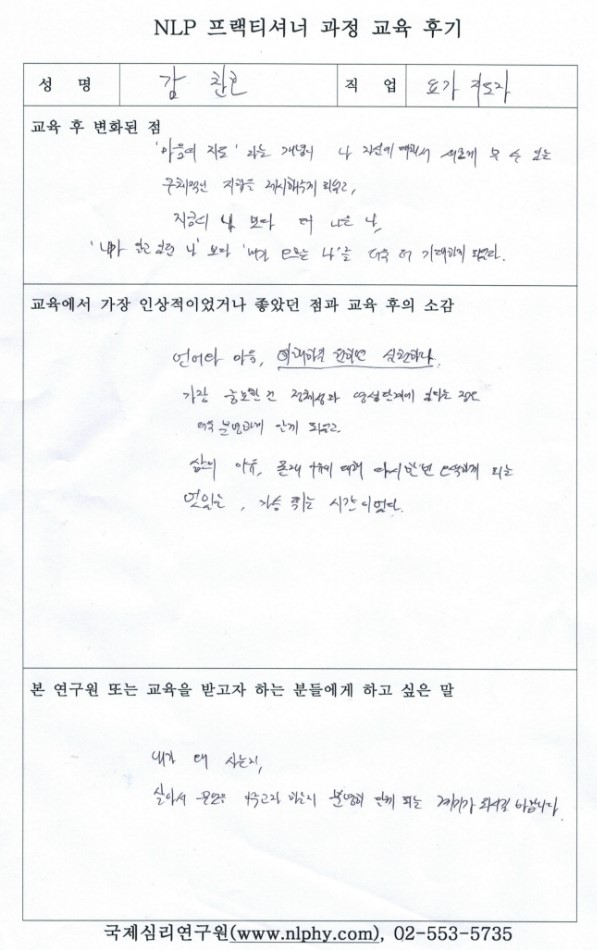 NLP 프랙티셔너 과정 교육 후기
성 명 직 업 요가 지도자
교육 후 변화된 점
'마음의 지도' 라는 개념이 나 자신에 대해서 새롭게 볼 수 있는
구체적인 지향을 제시해주게 되었고,
지금의 나 보다 더 나은 나,
'내가 알고 있던 나' 보다 '내가 모르는 나'를 더욱 더 기대하게 되었다.
교육에서 가장 인상적이었거나 좋았던 점과 교육 후의 소감
언어와 마음,
가장 중요한 건 정체성과 영성단계에 있다는 것을
더욱 분명하게 알게 되었고
삶의 이유, 존재 이유에 대해 다시 한번 되는
멋있는, 가슴 뛰는 시간이었다.
본 연구원 또는 교육을 받고자 하는 분들에게 하고 싶은 말
내가 왜 사는지,
살아서 무엇을 하는지 분명히 알게 되는 계기가 되시길 바랍니다.
국제심리연구원(www.nlphy.com), 02-553-5735